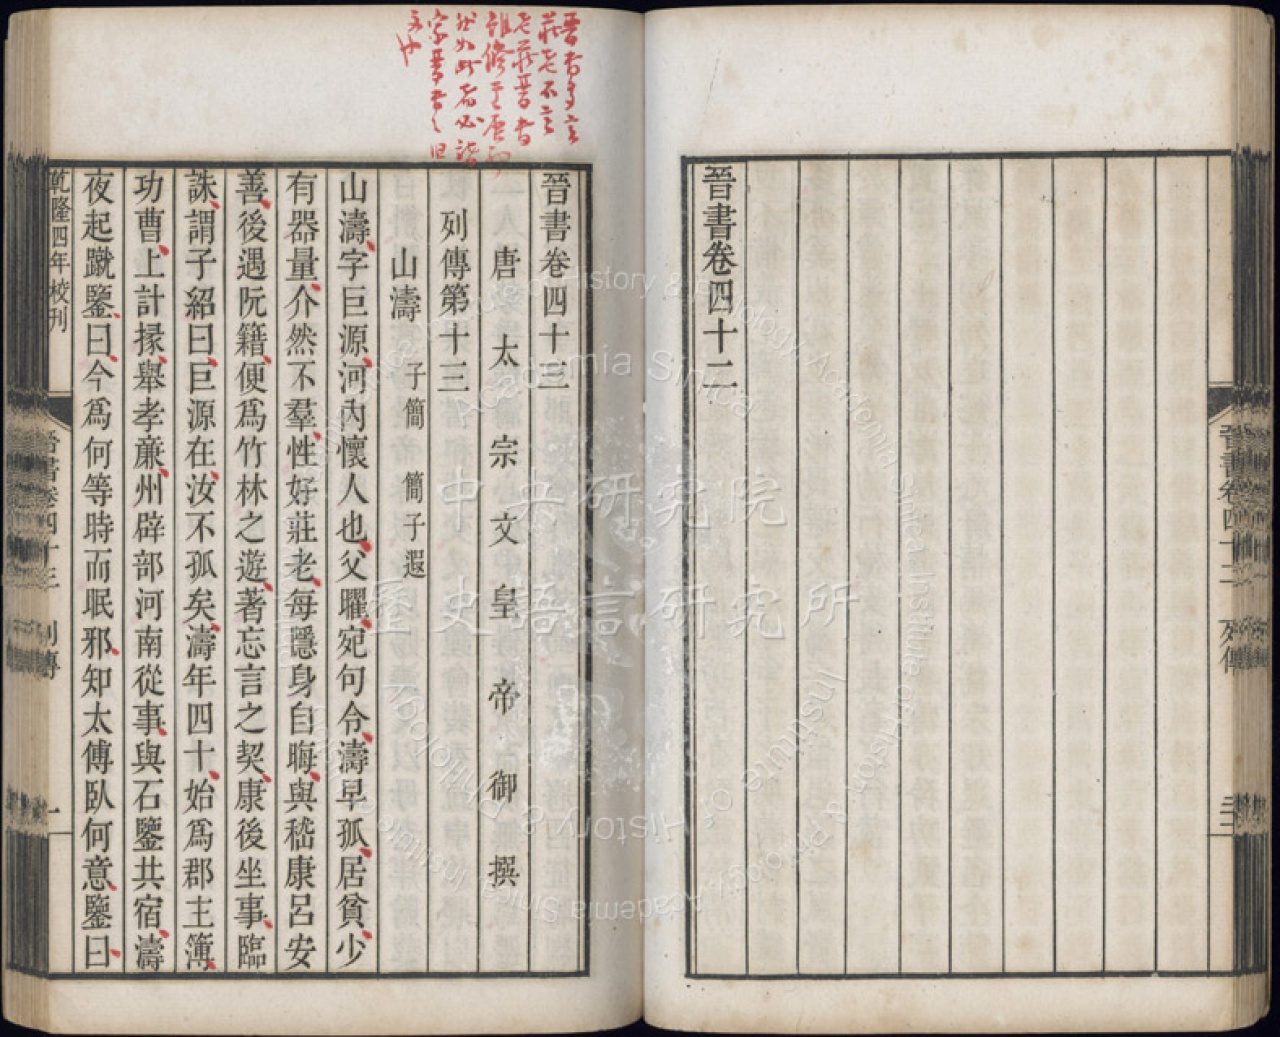 晉書卷四十二
晉書卷四十二 列傳
晉書多言
莊老不言
老莊晉書
然如此者必
晉書卷四十三
唐太宗文皇帝御撰
列傳第十三
山濤 子簡 簡子遐
山濤字巨源河內懷人也父曜宛句令濤早孤居貧少
有器量介然不羣性好莊老每隱身自晦與嵇康呂安
善後遇阮籍便爲竹林之遊著忘言之契康後坐事臨
誅謂子紹曰巨源在汝不孤矣濤年四十始爲郡主簿
功曹上計掾舉孝廉州辟部河南從事與石鑒共宿濤
夜起蹴鑒曰今爲何等時而眠邪知太傅臥何意鑒曰
乾隆四年校刊
晉書卷四十三 列傳
一
中央研究院
歷史語言研究所
Institute of History & Philology Academia Sinica